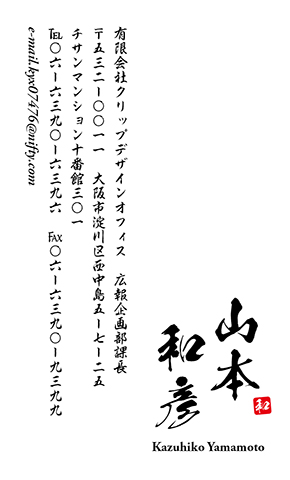 有限会社クリップデザインオフィス　広報企画部課長
〒五三二ー〇〇一一　大阪市淀川区西中島五ー七ー二五
チサンマンション十番館三〇一
TEL〇六ー六三九〇ー六三六六　FAX〇六ー六三九〇ー九三九九
e-mail.kyx07476@nifty.com
山本
和彦
和
Kazuhiko Yamamoto